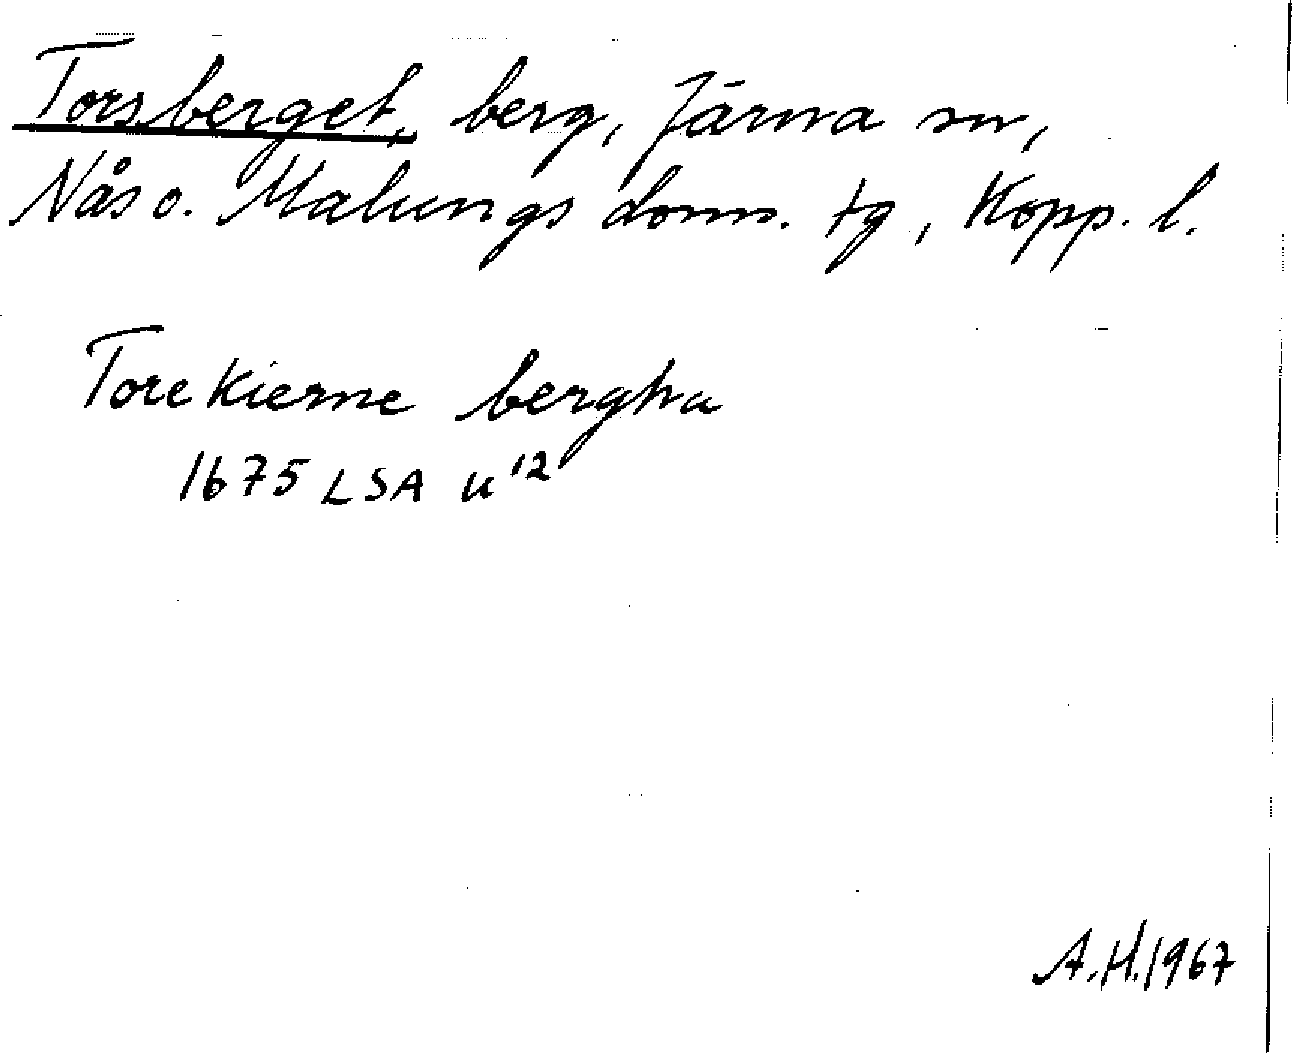 Torsberget, berg, Järna sn,
Nås o. Malungs doms. tg, Kopp. l.
Torekierne bergha
1675 LSA u¹²
A.H. 1967